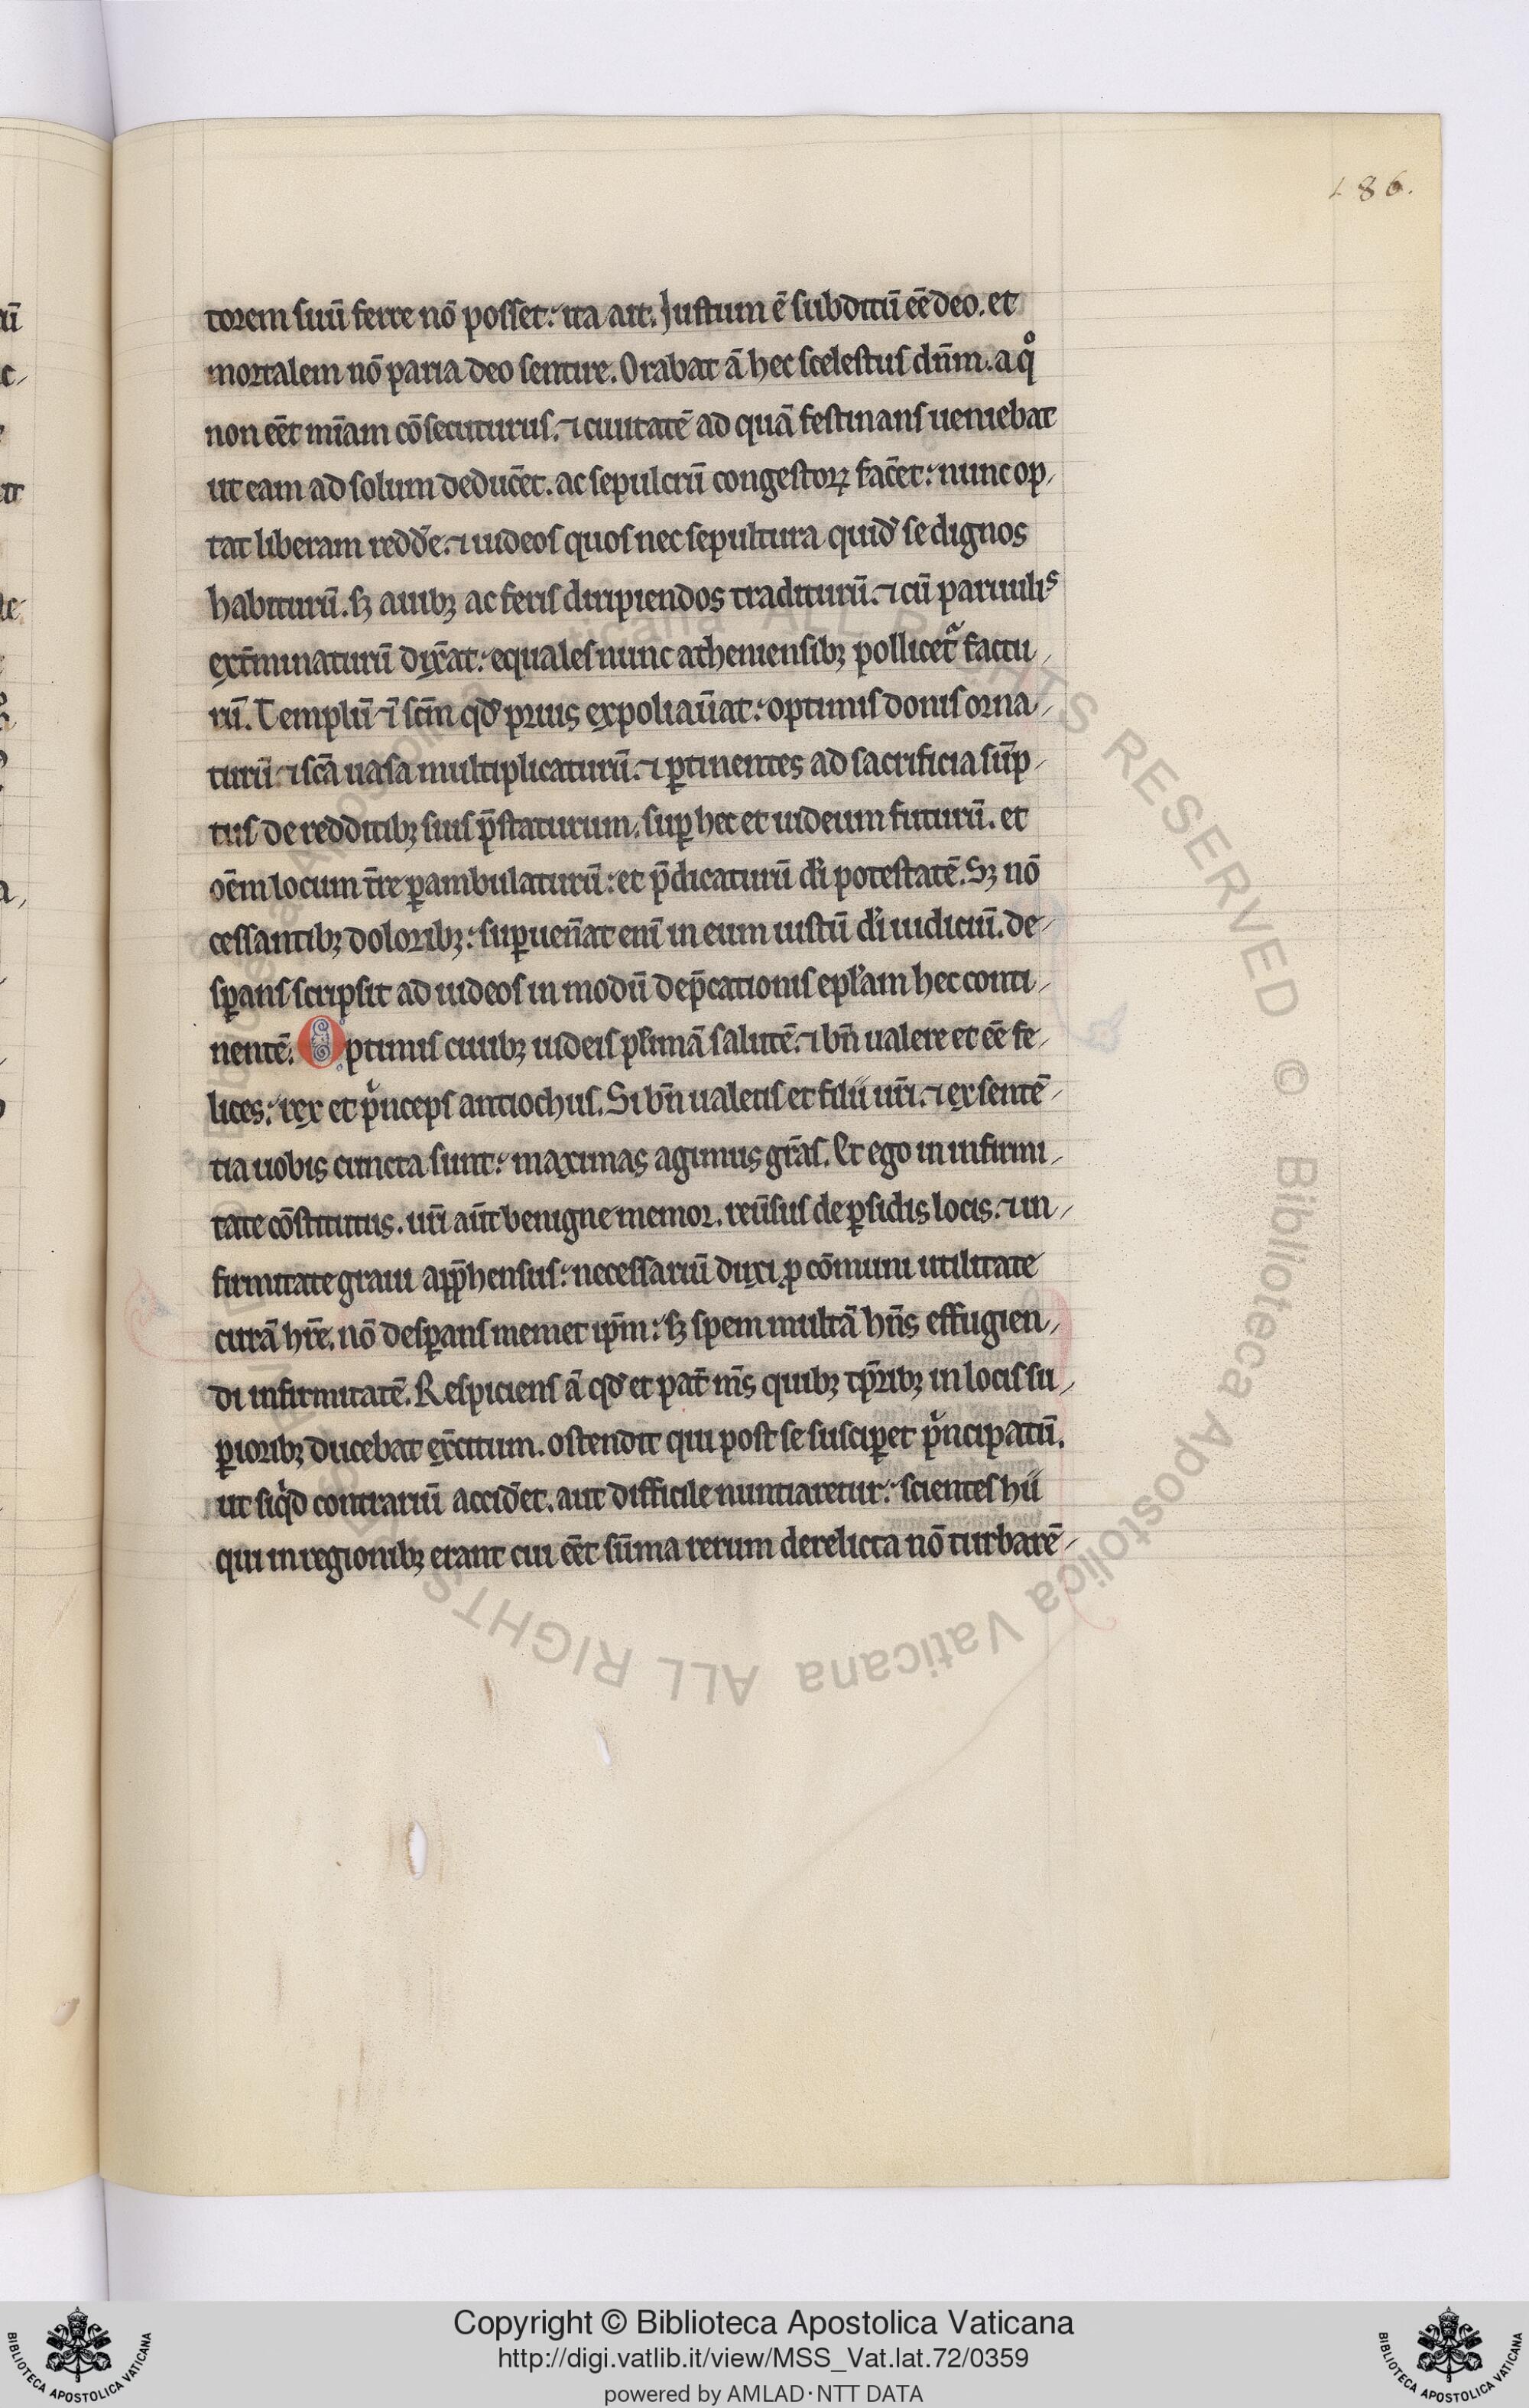 186.
torem suū ferre nō posset: ita ait. Justum ē subditū eē deo. et
mortalem nō paria deo sentire. Orabat ā hec scelestus dn̄m. a qͦ
non eēt mīam cōsecuturus. ⁊ ciuitatē ad quā festinans ueniebat
ut eam ad solum deducēt. ac sepulcrū congestoꝝ facēt: nunc op-
tat liberam reddē. ⁊ iudeos quos nec sepultura quid̾ se dignos
habiturū. sꝫ auibꝫ ac feris diripiendos traditurū. ⁊ cū paruulis
ext̄minaturū dix̄at: equales nunc atheniensibꝫ pollicet᷑ factu-
rū. Templū ⁊ī sc̄m qd̾ prius expoliau̅at: optimis donis orna-
turū ⁊ sc̄a uasa multiplicaturū. ⁊ ꝑtinentes ad sacrificia sūp-
tus de redditibꝫ suis p̄staturum. suꝑ hec et iudeum futurū. et
oēm locum t̄re ꝑambulaturū: et p̄dicaturū dī potestatē. Sꝫ nō
cessantibꝫ doloribꝫ: suꝑuen̄at enī in eum iustū dī iudiciū. de-
sꝑans scripsit ad iudeos in modū dep̄cationis epl̄am hec conti-
nentē. Optimis ciuibꝫ iudeis pl̄imā salutē. ⁊ bn̄ ualere et eē fe-
lices: rex et pͥnceps antiochus. Si bn̄ ualetis et filii ur̄i. ⁊ ex sentē-
tia uobis cuncta sunt: maximas agimus gr̄as. Et ego in infirmi-
tate cōstitutus. ur̄i aūt benigne memor. reu̅sus de ꝑsidis locis. ⁊ in-
firmitate graui app̄hensus: necessariū duxi ꝓ cōmuni utilitate
curā hr̄e. nō desꝑans memet ip̄m: sꝫ spem multā hn̄s effugien-
di infirmitatē. Respiciens ā qd̾ et pat̄ m̄s quibꝫ tp̄ribꝫ in locis su-
ꝑioribꝫ ducebat ex̄citum. ostendit qui post se susciꝑet pͥncipatū.
ut siqͥd contrariū accid̾et. aut difficile nuntiaretur: scientes hii
qui in regionibꝫ erant cui eēt sūma rerum derelicta nō turbarē-
Copyright © Biblioteca Apostolica Vaticana
http://digi.vatlib.it/view/MSS_Vat.lat.72/0359
powered by AMLAD·NTT DATA
BIBLIOTECA APOSTOLICA VATICANA
BIBLIOTECA APOSTOLICA VATICANA
© Biblioteca Apostolica Vaticana ALL RIGHTS RESERVED © Biblioteca Apostolica Vaticana ALL RIGHTS RESERVED